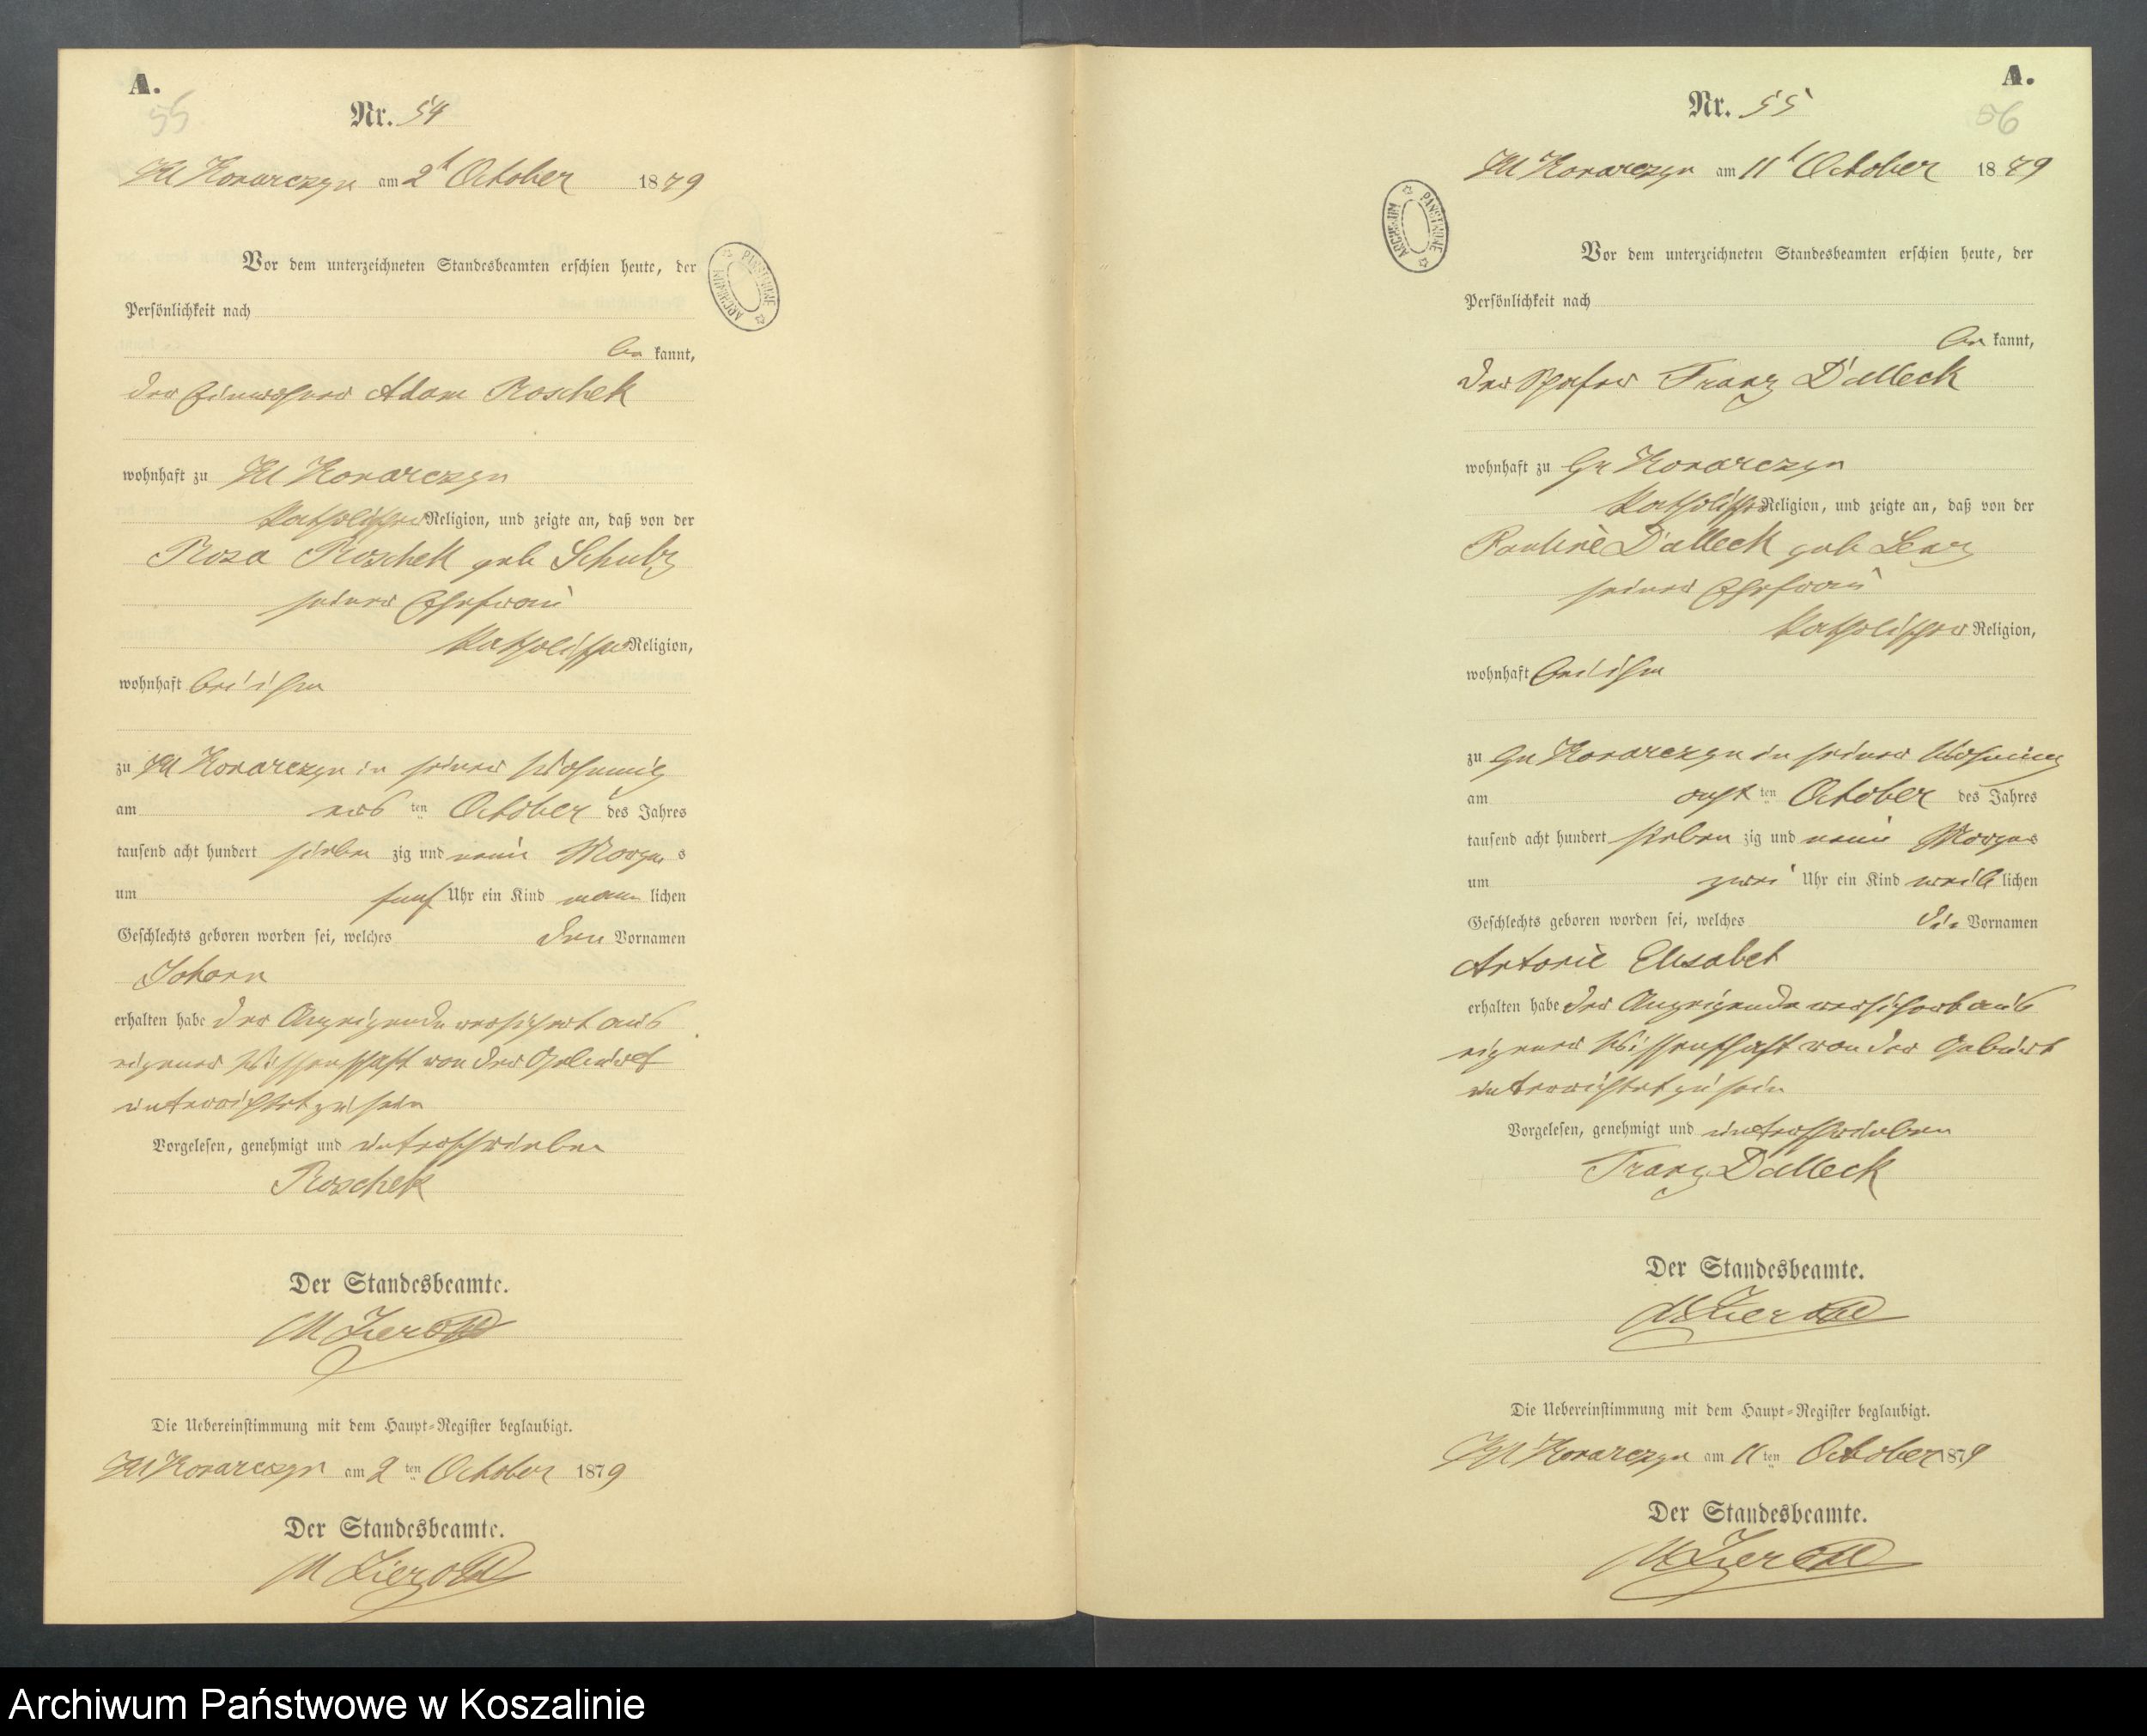 A.
55
Nr. 54
Kl Konarczyn am 2t October 1879
Vor dem unterzeichneten Standesbeamten erschien heute, der
Persönlichkeit nach
be kannt,
der Einwohner Adam Roschek
wohnhaft zu Kl Konarczyn
katholischer Religion, und zeigte an, daß von der
Roza Roschek geb Schulz
seiner Ehefrau
katholischer Religion,
wohnhaft bei ihm
zu Kl Konarczyn in seiner Wohnung
am ten October des Jahres
tausend acht hundert sieben zig und neun Morgens
um fünf Uhr ein Kind mann lichen
Geschlechts geboren worden sei, welches den Vornamen
Johann
erhalten habe der Anzeigende versichert aus
eigener Wissenschaft von der Geburt
unterrichtet zu sein
Vorgelesen, genehmigt und unterschrieben
Roschek
Der Standesbeamte.
Die Uebereinstimmung mit dem Haupt-Register beglaubigt.
Kl Konarczyn am 2 ten October 1879
Der Standesbeamte.
A.
56
Nr. 55
Kl Konarczyn am 11t October 1879
ARCHIWUM PAŃSTWOWE
Vor dem unterzeichneten Standesbeamten erschien heute, der
Persönlichkeit nach
be kannt,
der Franz Dalleck
wohnhaft zu Gr Konarczyn
katholischer Religion, und zeigte an, daß von der
Pauline Dalleck geb
seiner Ehefrau
katholischer Religion,
wohnhaft bei ihm
zu Gr Konarczyn in seiner Wohnung
am acht ten October des Jahres
tausend acht hundert sieben zig und neun Morgens
um zwei Uhr ein Kind weib lichen
Geschlechts geboren worden sei, welches die Vornamen
Antonie Elisabet
erhalten habe der Anzeigende versichert aus
eigener Wissenschaft von der Geburt
unterrichtet zu sein
Vorgelesen, genehmigt und unterschrieben
Franz Dalleck
Der Standesbeamte.
Die Uebereinstimmung mit dem Haupt-Register beglaubigt.
Kl Konarczyn am 11 ten October 1879
Der Standesbeamte.
Archiwum Państwowe w Koszalinie